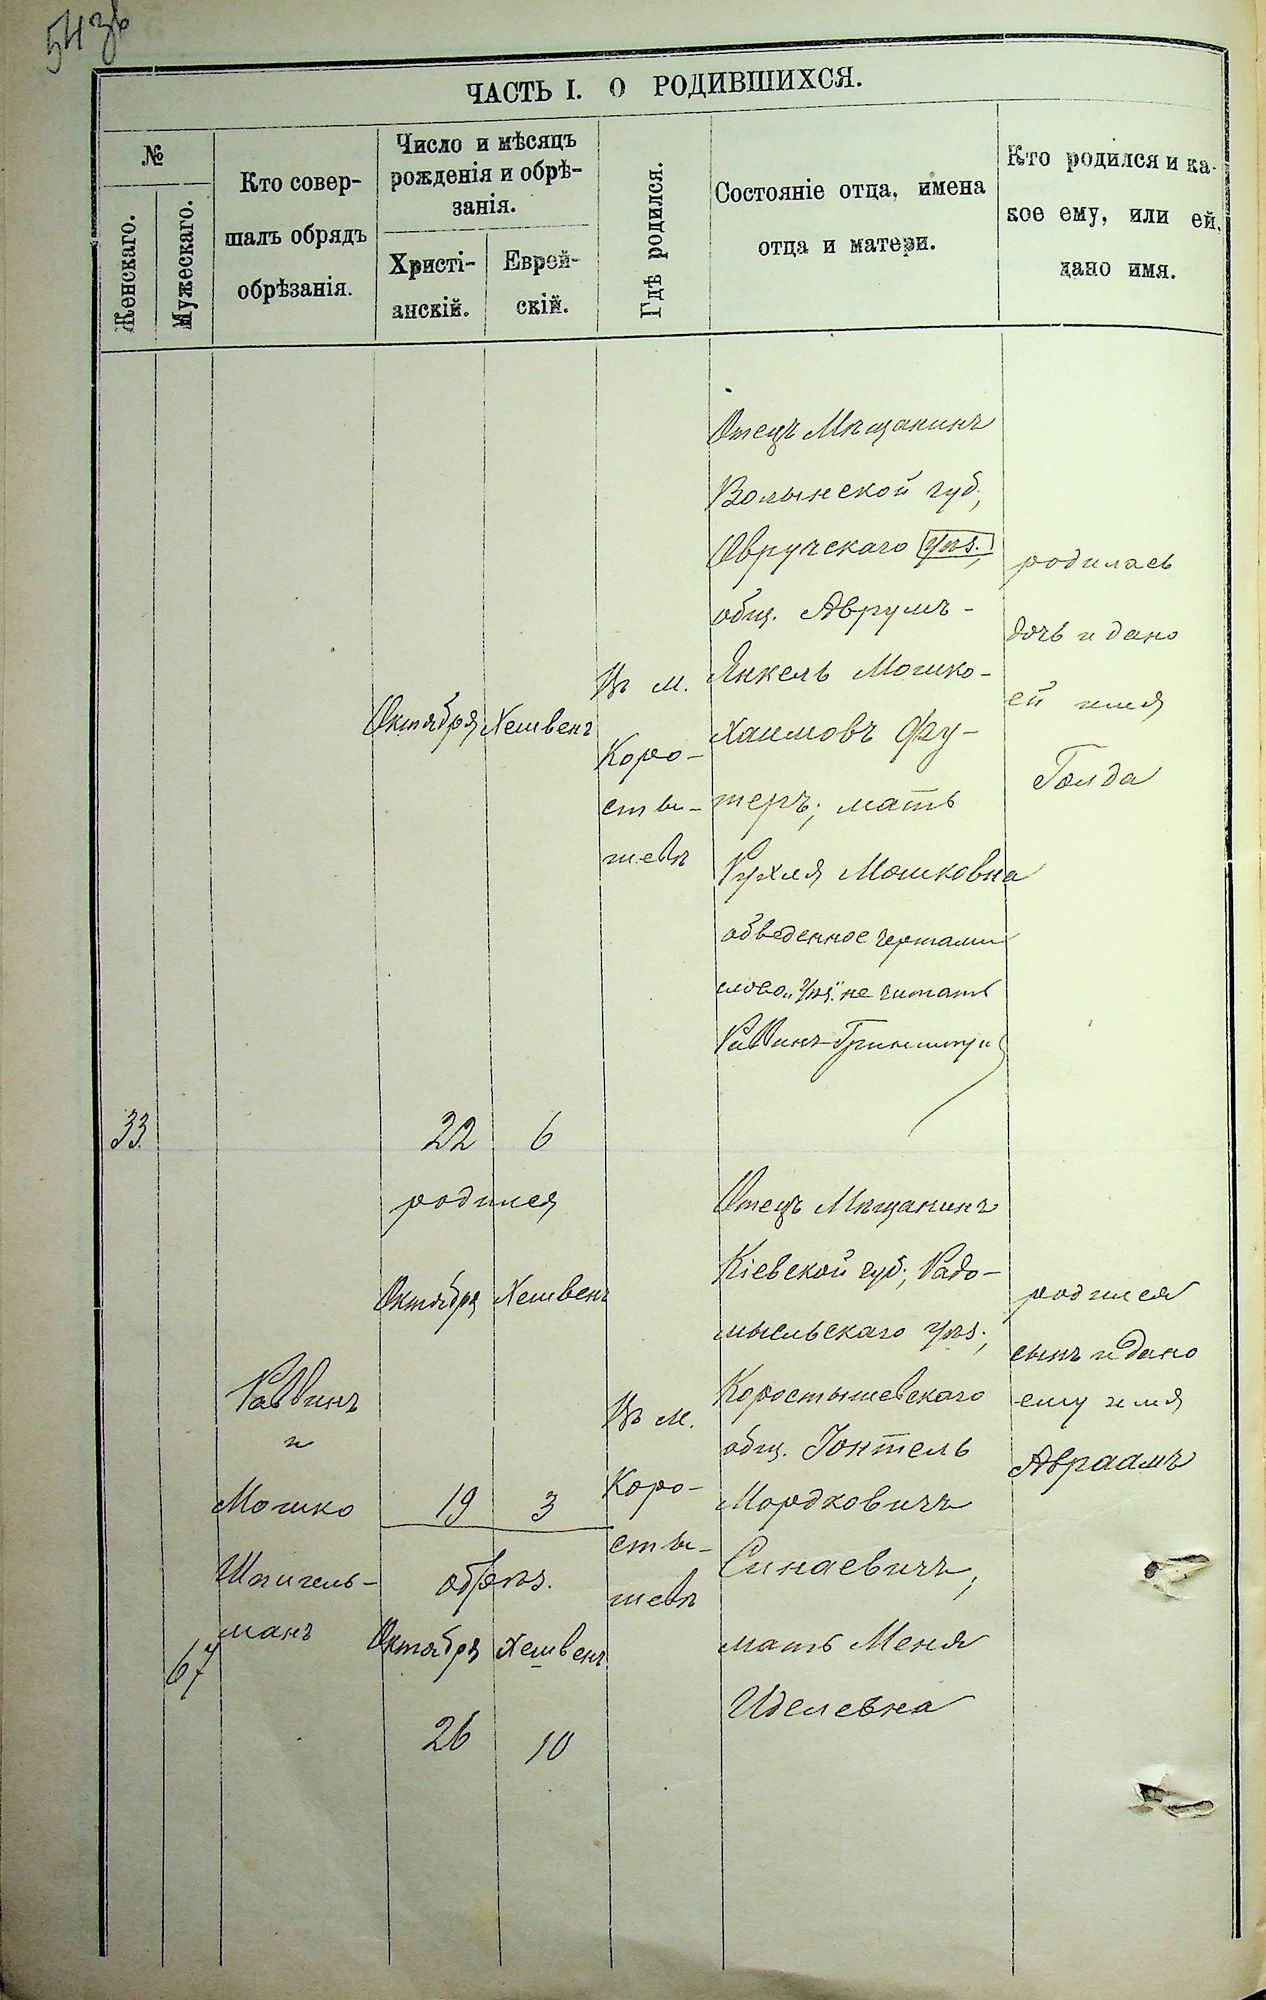 543об
ЧАСТЬ I. О РОДИВШИХСЯ.
№
Женскаго.
Мужескаго.
Кто совер-
шалъ обрядъ
обрѣзанія.
Число и мѣсяцъ
рожденія и обрѣ-
занія.
Христі-
анскій.
Еврей-
скій.
Гдѣ родился.
Состояніе отца, имена
отца и матери.
Кто родился и ка-
кое ему, или ей,
дано имя.
33
Октября
22
Хешвенъ
6
Въ м.
Коро-
сты-
шевѣ
Отецъ Мѣщанинъ
Волынской губ,
Овручскаго уѣз.,
общ. Аврумъ-
Янкель Мошко-
хаимовъ Фу-
теръ; мать
Рухля Мошковна
обведенное чертами
слово „уѣз.“ не читать
Раввинъ
родилась
дочь и дано
ей имя
Голда
67
Раввинъ
и
Мошко
Шпигель-
манъ
родился
Октября
19
Хешвенъ
3
обрѣз.
Октября
26
Хешвенъ
10
Въ м.
Коро-
сты-
шевѣ
Отецъ Мѣщанинъ
Кіевской губ, Радо-
мысльскаго уѣз.,
Коростышевскаго
общ. Іонтель
Мордковичъ
Синаевичъ,
мать Меня
Иделевна
родился
сынъ и дано
ему имя
Авраамъ